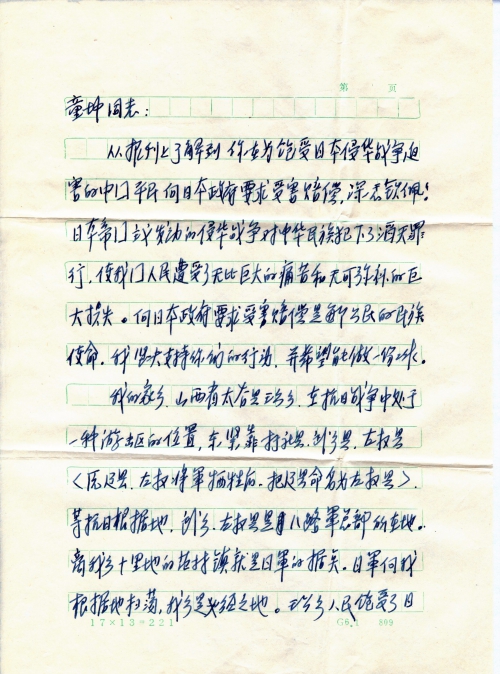 第 页
童增同志：
从报刊上了解到你在为饱受日本侵华战争迫
害的中国平民向日本政府要求受害赔偿，深表钦佩！
日本帝国主义发动的侵华战争对中华民族犯下了滔天罪
行，使我国人民遭受了无比巨大的痛苦和无可弥补的巨
大损失。向日本政府要求受害赔偿是每个公民的民族
使命。我坚决支持你们的行动，并希望能做一份工作。
我的家乡，山西省太谷县 乡，在抗日战争中处于
一种游击区的位置，东紧靠 县，左权县
〈辽县，左权将军牺牲后，把辽县命名为左权县〉，
等抗日根据地， 乡，左权县是八路军总部所在地。
离我乡十里地的 村镇就是日军的据点。日军向我
根据地扫荡，我乡是必经之地。 乡人民饱受了日
17×13=221
G6.1 809